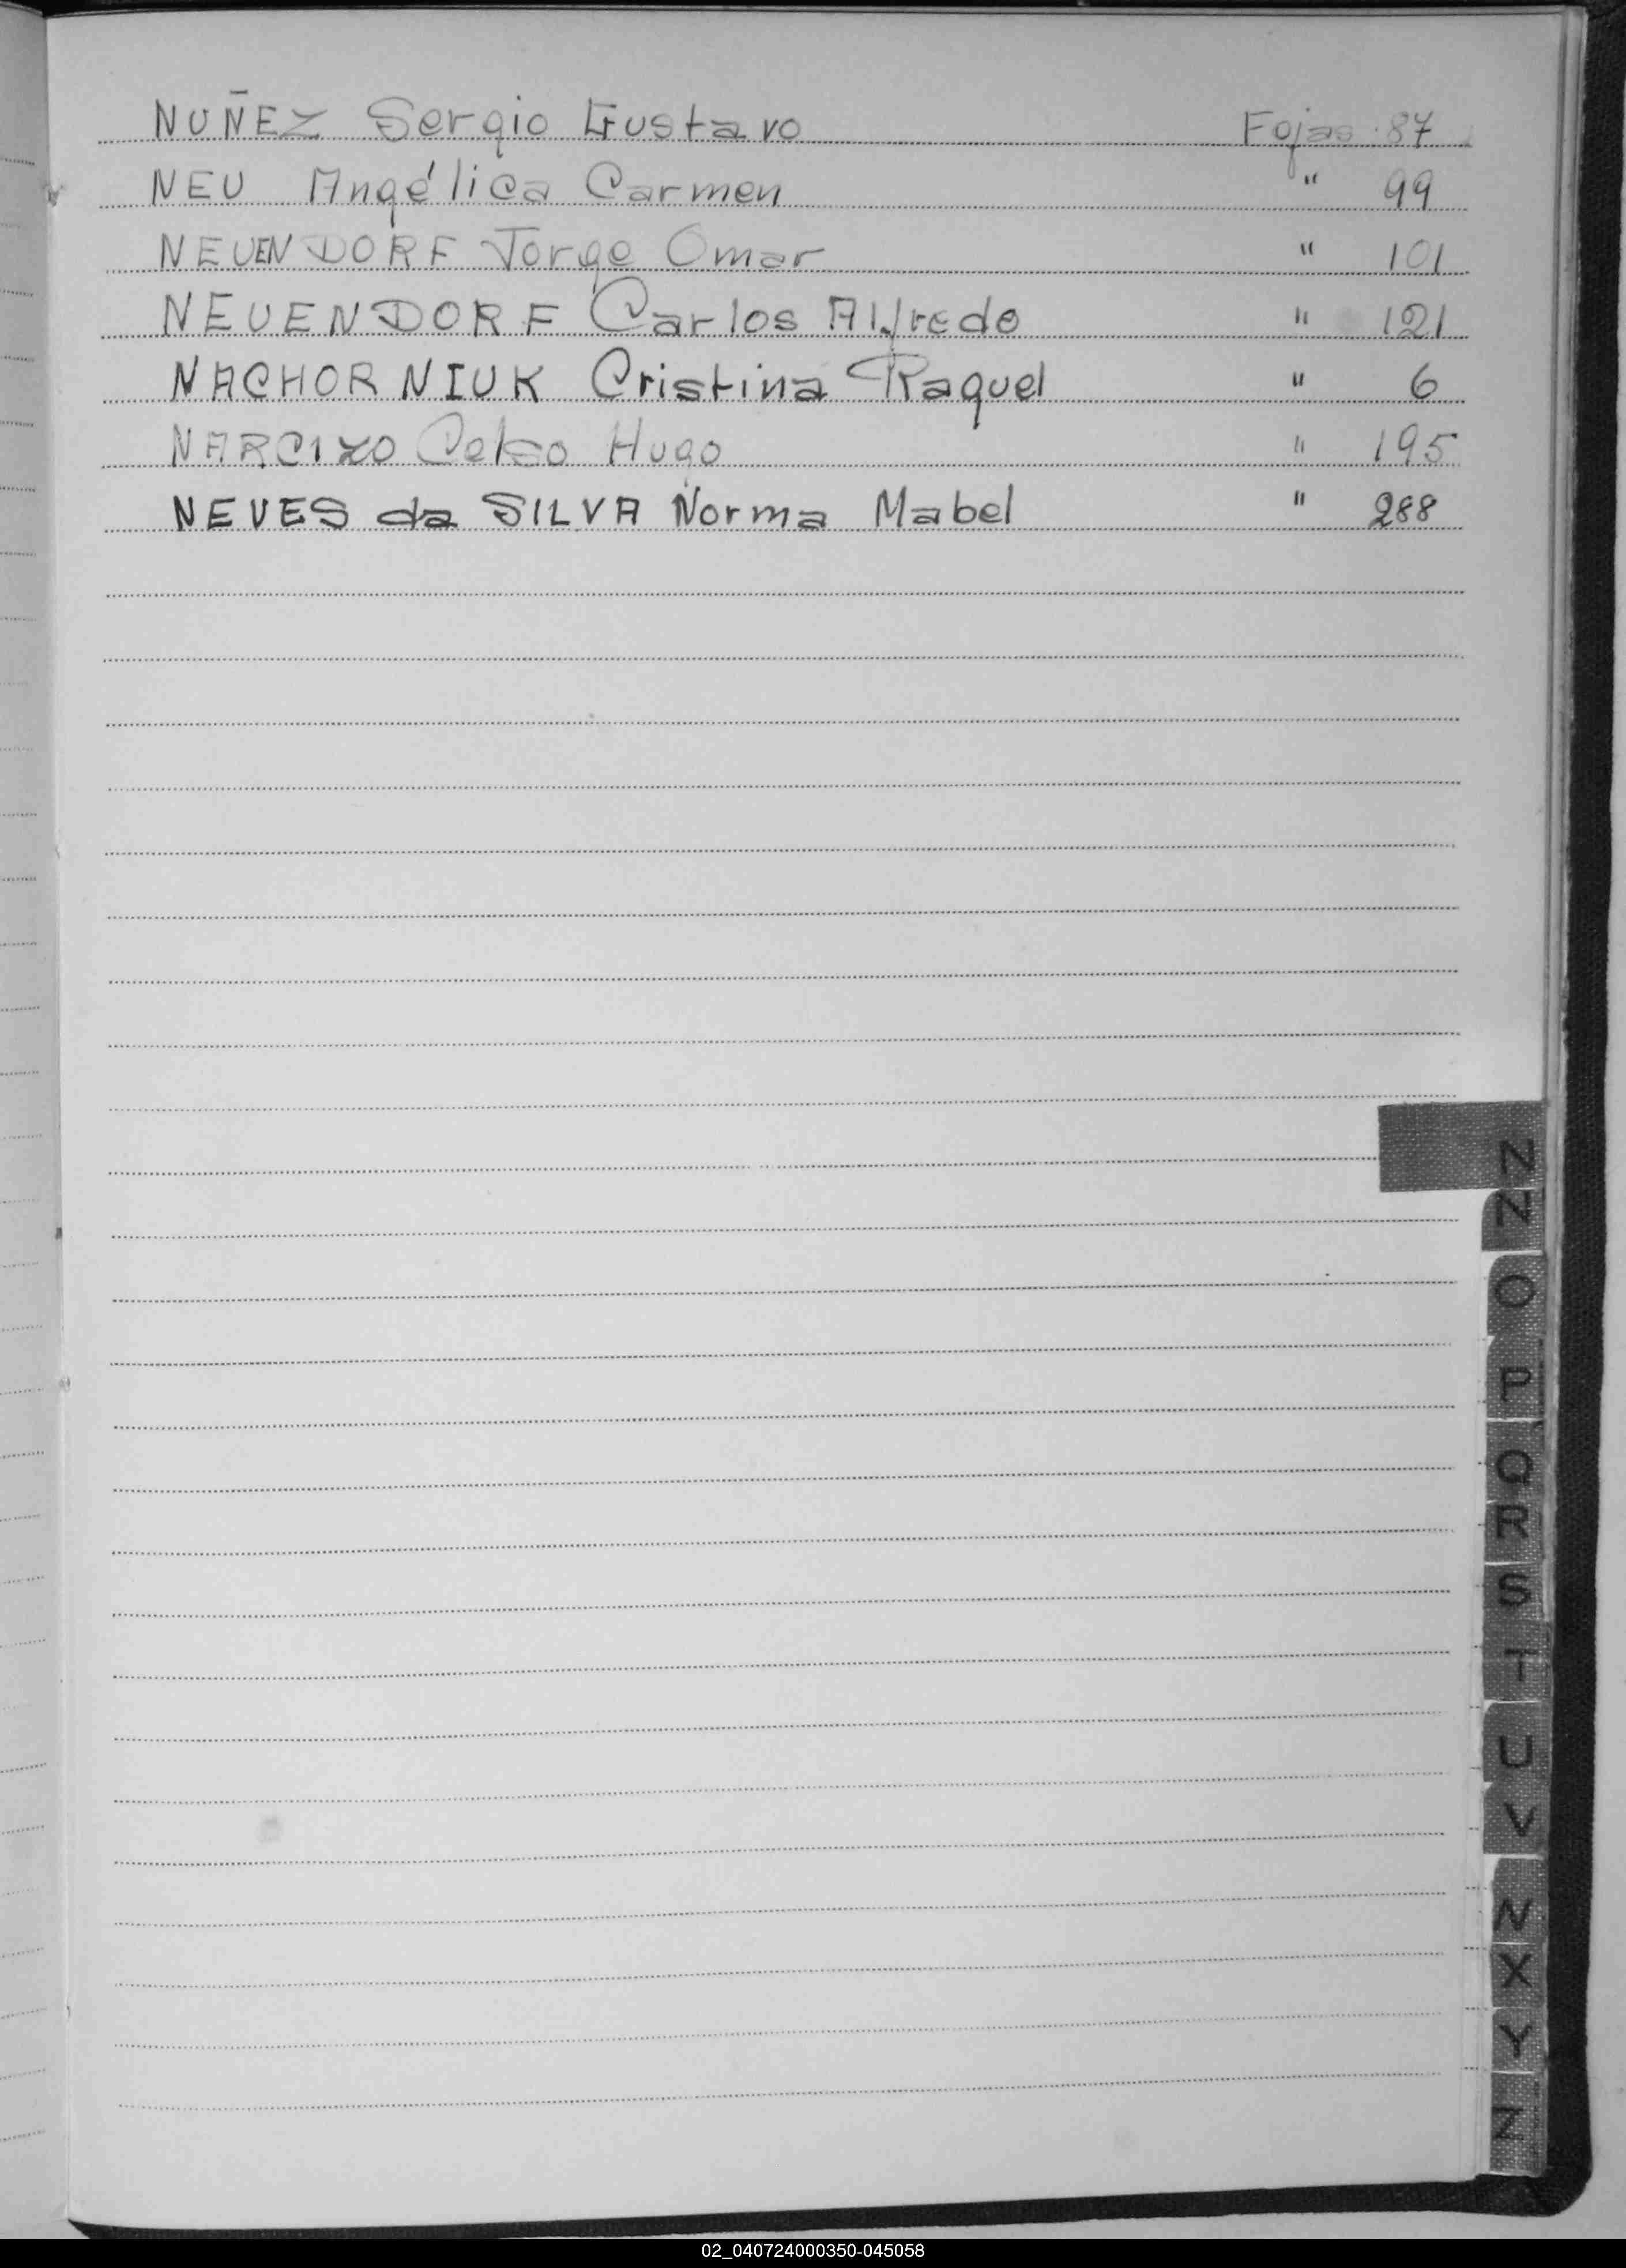 NUÑEZ Sergio Gustavo Fojas 87
NEU Angélica Carmen " 99
NEUENDORF Jorge Omar " 101
NEUENDORF Carlos Alfredo " 121
NACHORNIUK Cristina Raquel " 6
NARCIZO Celso Hugo " 195
NEVES da SILVA Norma Mabel " 288
N
Ñ
O
P
Q
R
S
T
U
V
W
X
Y
Z
02_040724000350-045058